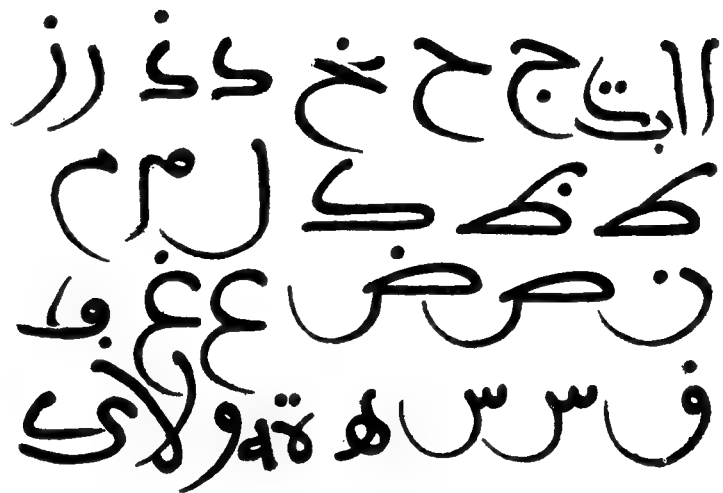 ا ا ب ت ج ح خ د ذ ر ز
ط ظ ك ل م م
ن ص ض ع غ ڢ
ڧ س س ه ة ه و لا ى